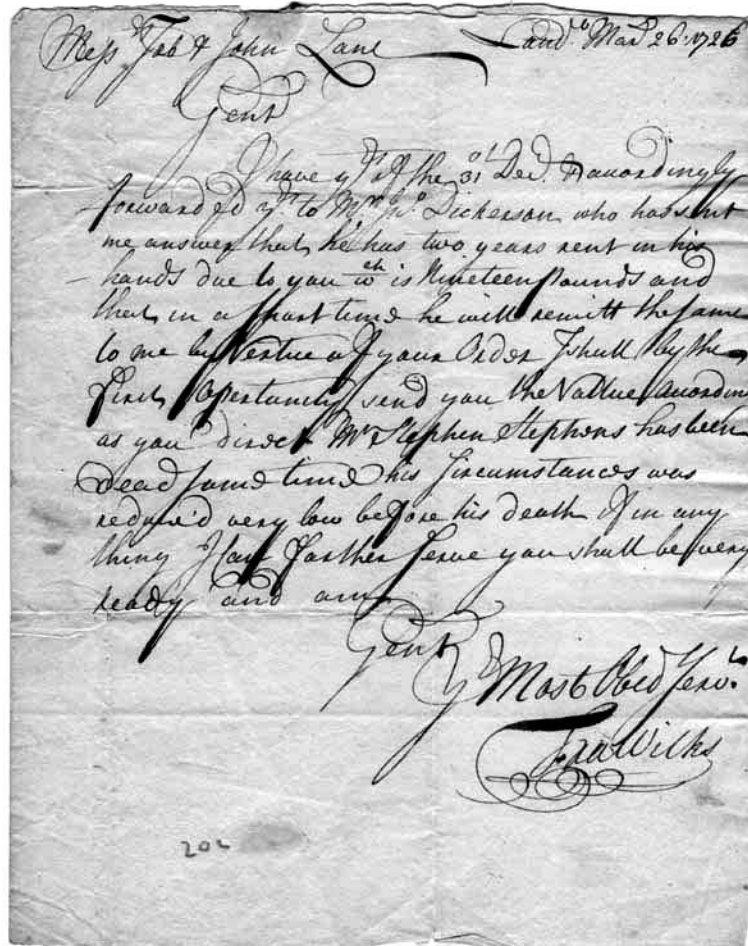 Messrs Job & John Lane Londo Mar 26: 1726
Gent
I have yrs of the 31t Decr & accordingly
forwarded yr to Mr Jno Dickerson who has sent
me answer that he has two years rent in his
hands due to you wch is Nineteen Pounds and
that in a short time he will remitt the same
to me by Vertue of your Order I shall by the
first Opertunity send you the Vallue according
as you direct Mr Stephen Stephens has been
dead some time his Circumstances was
reduc'd very low before his death If in any
thing I can farther serve you shall be very
ready and am
Gent
Yr Most Obed Servt
Fra Wilks
202